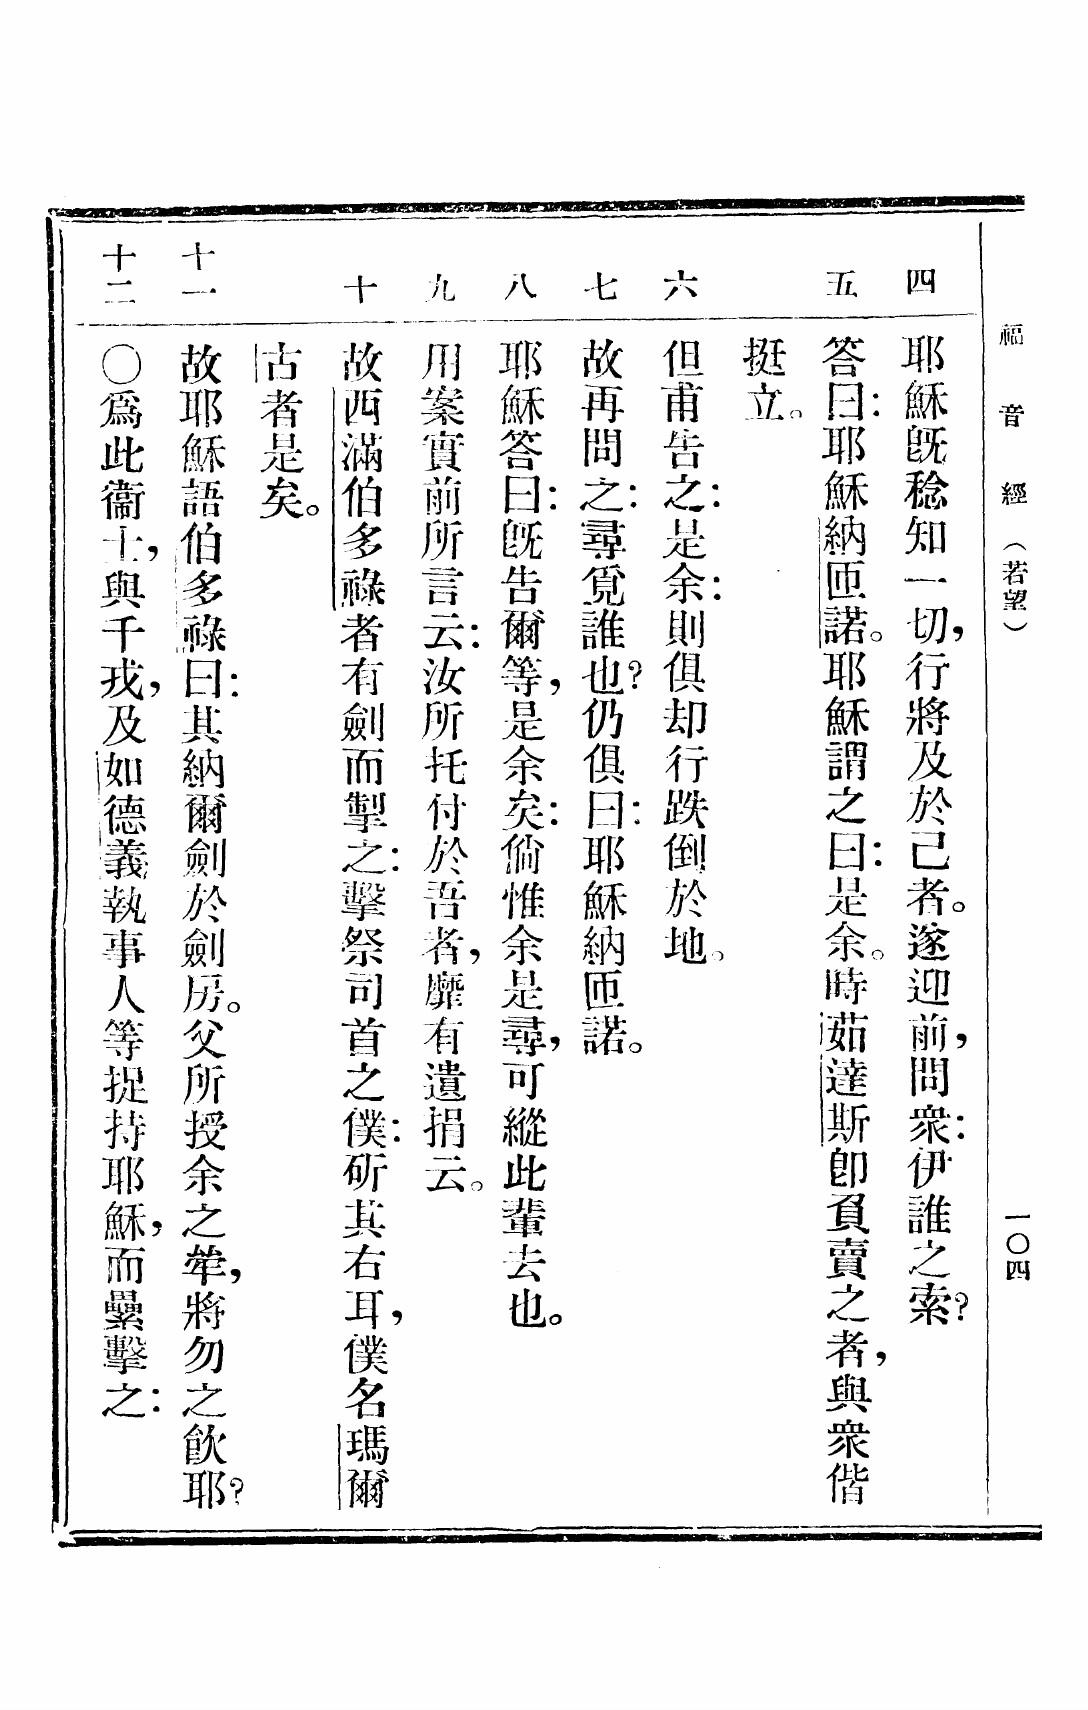 福音經（若望）
一〇四
四 耶穌旣稔知一切，行將及於己者。遂迎前，問衆：伊誰之索？
五 答曰：耶穌納匝諾。耶穌謂之曰：是余。時茹達斯卽負賣之者，與衆偕
挺立。
六 但甫告之：是余：則俱却行跌倒於地。
七 故再問之：尋覓誰也？仍俱曰：耶穌納匝諾。
八 耶穌答曰：旣告爾等，是余矣：倘惟余是尋，可縱此輩去也。
九 用案實前所言云：汝所托付於吾者，靡有遺捐云。
十 故西滿伯多祿者有劍而掣之：擊祭司首之僕：斫其右耳，僕名瑪爾
古者是矣。
十一 故耶穌語伯多祿曰：其納爾劍於劍房。父所授余之斝，將勿之飲耶？
十二 〇爲此衞士，與千戎，及如德義執事人等捉持耶穌，而纍擊之：